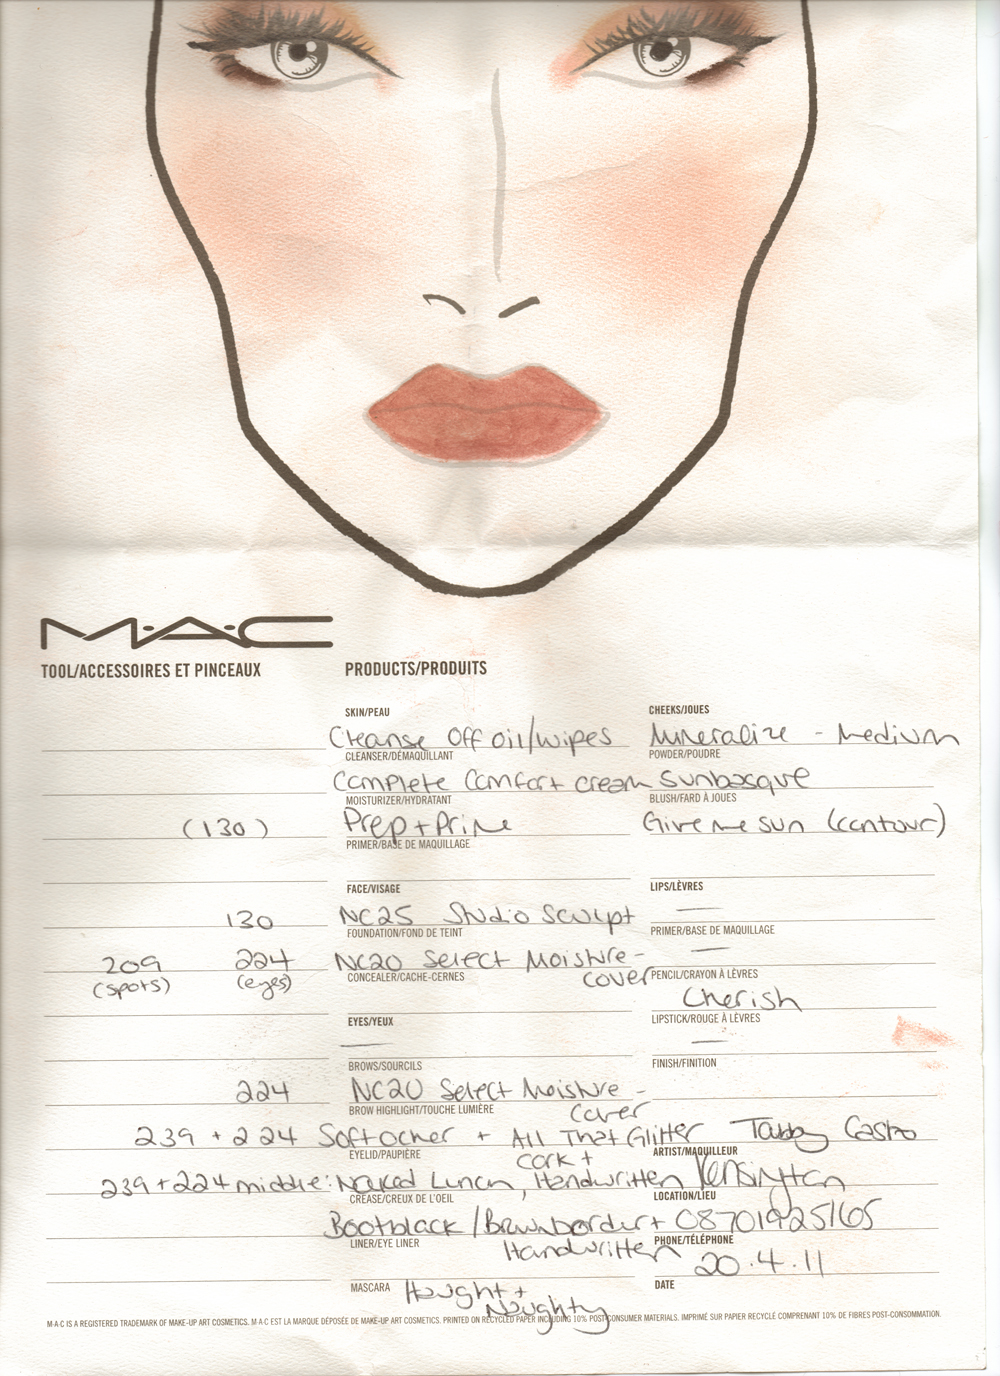 M·A·C
TOOL/ACCESSOIRES ET PINCEAUX
PRODUCTS/PRODUITS
SKIN/PEAU
Cleanse Off oil/wipes
CLEANSER/DÉMAQUILLANT
Complete Comfort cream
MOISTURIZER/HYDRATANT
(130) Prep + Prime
PRIMER/BASE DE MAQUILLAGE
CHEEKS/JOUES
Mineralize - Medium
POWDER/POUDRE
Sunbasque
BLUSH/FARD À JOUES
Give me sun (contour)
FACE/VISAGE
130 NC25 Studio Sculpt
FOUNDATION/FOND DE TEINT
209 224 NC20 Select Moisture-
(spots) (eyes) cover
CONCEALER/CACHE-CERNES
LIPS/LÈVRES
—
PRIMER/BASE DE MAQUILLAGE
—
PENCIL/CRAYON À LÈVRES
Cherish
LIPSTICK/ROUGE À LÈVRES
—
FINISH/FINITION
EYES/YEUX
—
BROWS/SOURCILS
224 NC20 Select Moisture -
cover
BROW HIGHLIGHT/TOUCHE LUMIÈRE
239 + 224 Soft Ocher + All That Glitter
EYELID/PAUPIÈRE
cork +
239 + 224 middle: Naked Lunch, Handwritten
CREASE/CREUX DE L'OEIL
Bootblack / Brownborder +
Handwritten
LINER/EYE LINER
MASCARA Haught +
Naughty
Tabby Castro
ARTIST/MAQUILLEUR
Kensington
LOCATION/LIEU
08701925165
PHONE/TÉLÉPHONE
20.4.11
DATE
M·A·C IS A REGISTERED TRADEMARK OF MAKE-UP ART COSMETICS. M·A·C EST LA MARQUE DÉPOSÉE DE MAKE-UP ART COSMETICS. PRINTED ON RECYCLED PAPER INCLUDING 10% POST-CONSUMER MATERIALS. IMPRIMÉ SUR PAPIER RECYCLÉ COMPRENANT 10% DE FIBRES POST-CONSOMMATION.